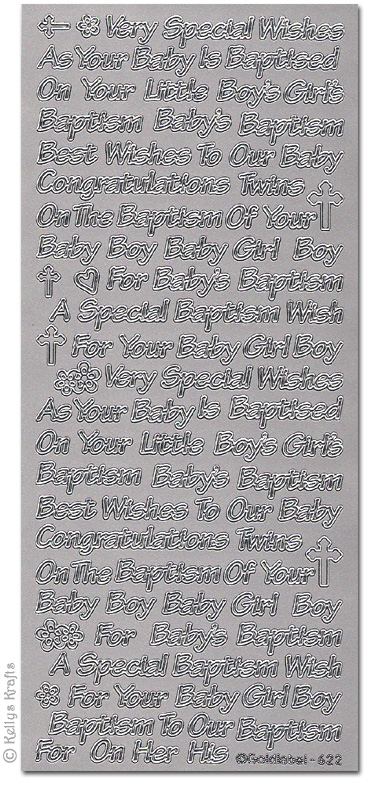 Very Special Wishes
As Your Baby Is Baptised
On Your Little Boy's Girl's
Baptism Baby's Baptism
Best Wishes To Our Baby
Congratulations Twins
On The Baptism Of Your
Baby Boy Baby Girl Boy
For Baby's Baptism
A Special Baptism Wish
For Your Baby Girl Boy
Very Special Wishes
As Your Baby Is Baptised
On Your Little Boy's Girl's
Baptism Baby's Baptism
Best Wishes To Our Baby
Congratulations Twins
On The Baptism Of Your
Baby Boy Baby Girl Boy
For Baby's Baptism
A Special Baptism Wish
For Your Baby Girl Boy
Baptism To Our Baptism
For On Her His ©Goldlabel - 622
© Kellys Krafts